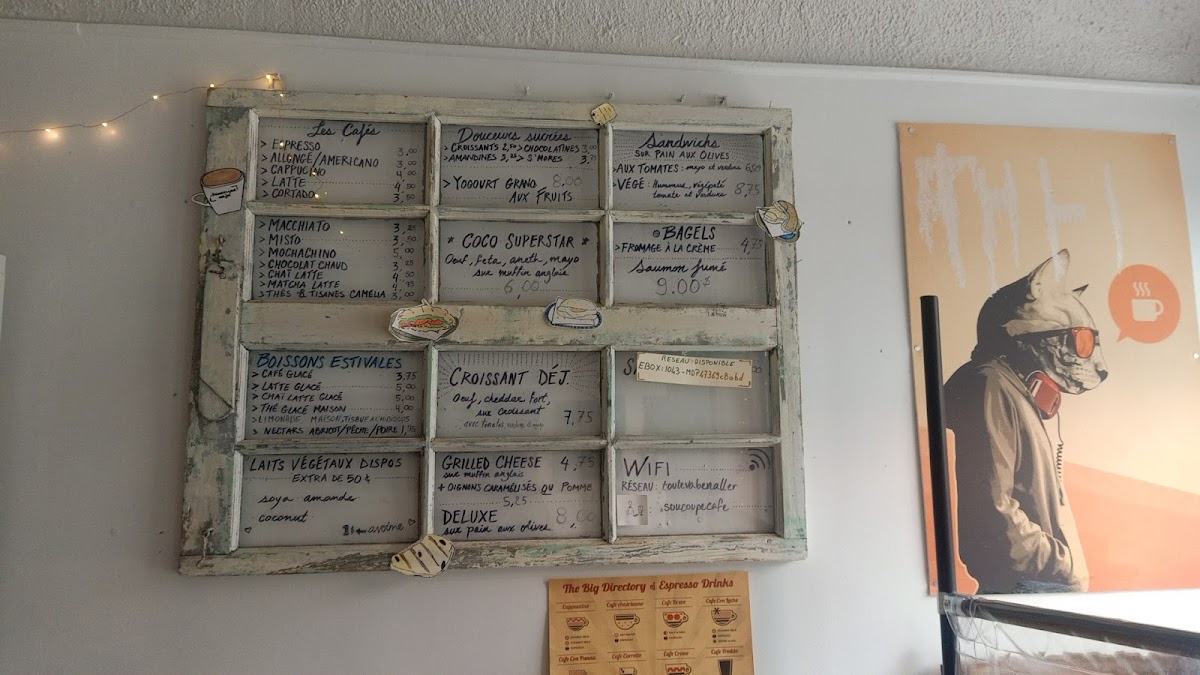 Les Cafés
> ESPRESSO 3,00
> ALLONGÉ/AMERICANO 3,00
> CAPPUCINO 4,00
> LATTE 4,50
> CORTADO 3,50
> MACCHIATO 3,25
> MISTO 3,50
> MOCHACHINO 5,00
> CHOCOLAT CHAUD 3,25
> CHAÏ LATTE 4,50
> MATCHA LATTE
> THÉS & TISANES CAMELIA 3,00
BOISSONS ESTIVALES
> CAFÉ GLACÉ 3,75
> LATTE GLACÉ 5,00
> CHAÏ LATTE GLACÉ 5,00
> THÉ GLACÉ MAISON 4,00
> LIMONADE MAISON,
> NECTARS ABRICOT/PÊCHE/POIRE
LAITS VÉGÉTAUX DISPOS
EXTRA DE 50¢
soya amande
coconut
avoine
Douceurs sucrées
> CROISSANTS 2,50 > CHOCOLATINES 3,00
> AMANDINES 3,25 > S'MORES
> YOGOURT GRANO 8.00
AUX FRUITS
* COCO SUPERSTAR *
Oeuf, feta, aneth, mayo
sur muffin anglais
6,00
CROISSANT DÉJ.
Oeuf, cheddar fort,
sur croissant
7,75
GRILLED CHEESE 4,75
sur muffin anglais
+ OIGNONS CARAMÉLISÉS OU POMME
5,25
DELUXE 8,00
sur pain aux olives
Sandwichs
SUR PAIN AUX OLIVES
> AUX TOMATES: mayo et verdure 6,50
> VÉGÉ: Hummus, végépaté 8,75
tomate et verdure
BAGELS
> FROMAGE À LA CRÈME 4,75
Saumon fumé
9.00$
RESEAU: DISPONIBLE
EBOX:1043-MDP
WIFI
RÉSEAU: toutevabenaller
: soucoupecafe
The Big Directory of Espresso Drinks
Cappuccino
Café Américano
Café Breve
Café Con Leche
Café Con Panna
Café Corretto
Café Crema
Café Freddo